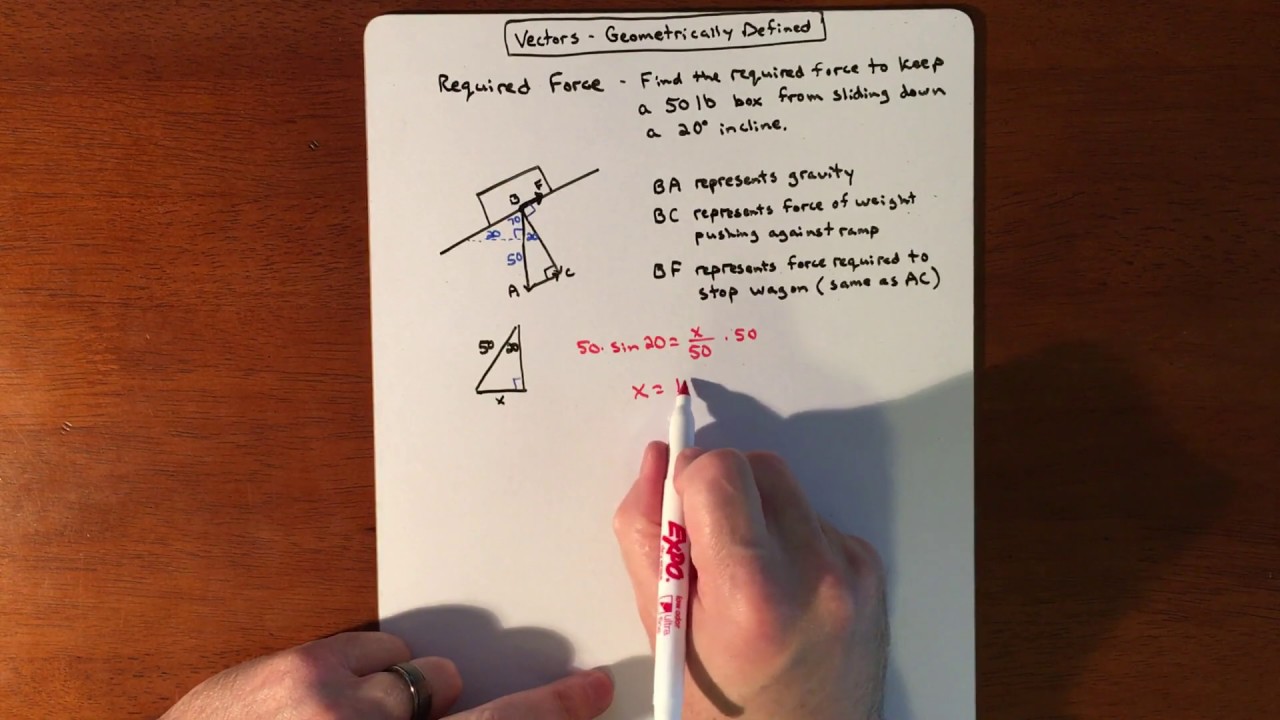 Vectors - Geometrically Defined
Required Force - Find the required force to keep
a 50 lb box from sliding down
a 20° incline.
BA represents gravity
BC represents force of weight
pushing against ramp
BF represents force required to
stop wagon (same as AC)
B F
70
20 20
50
A C
50 20
x
50 · sin 20 = x/50 · 50
x = 1
EXPO.
low odor
ultra